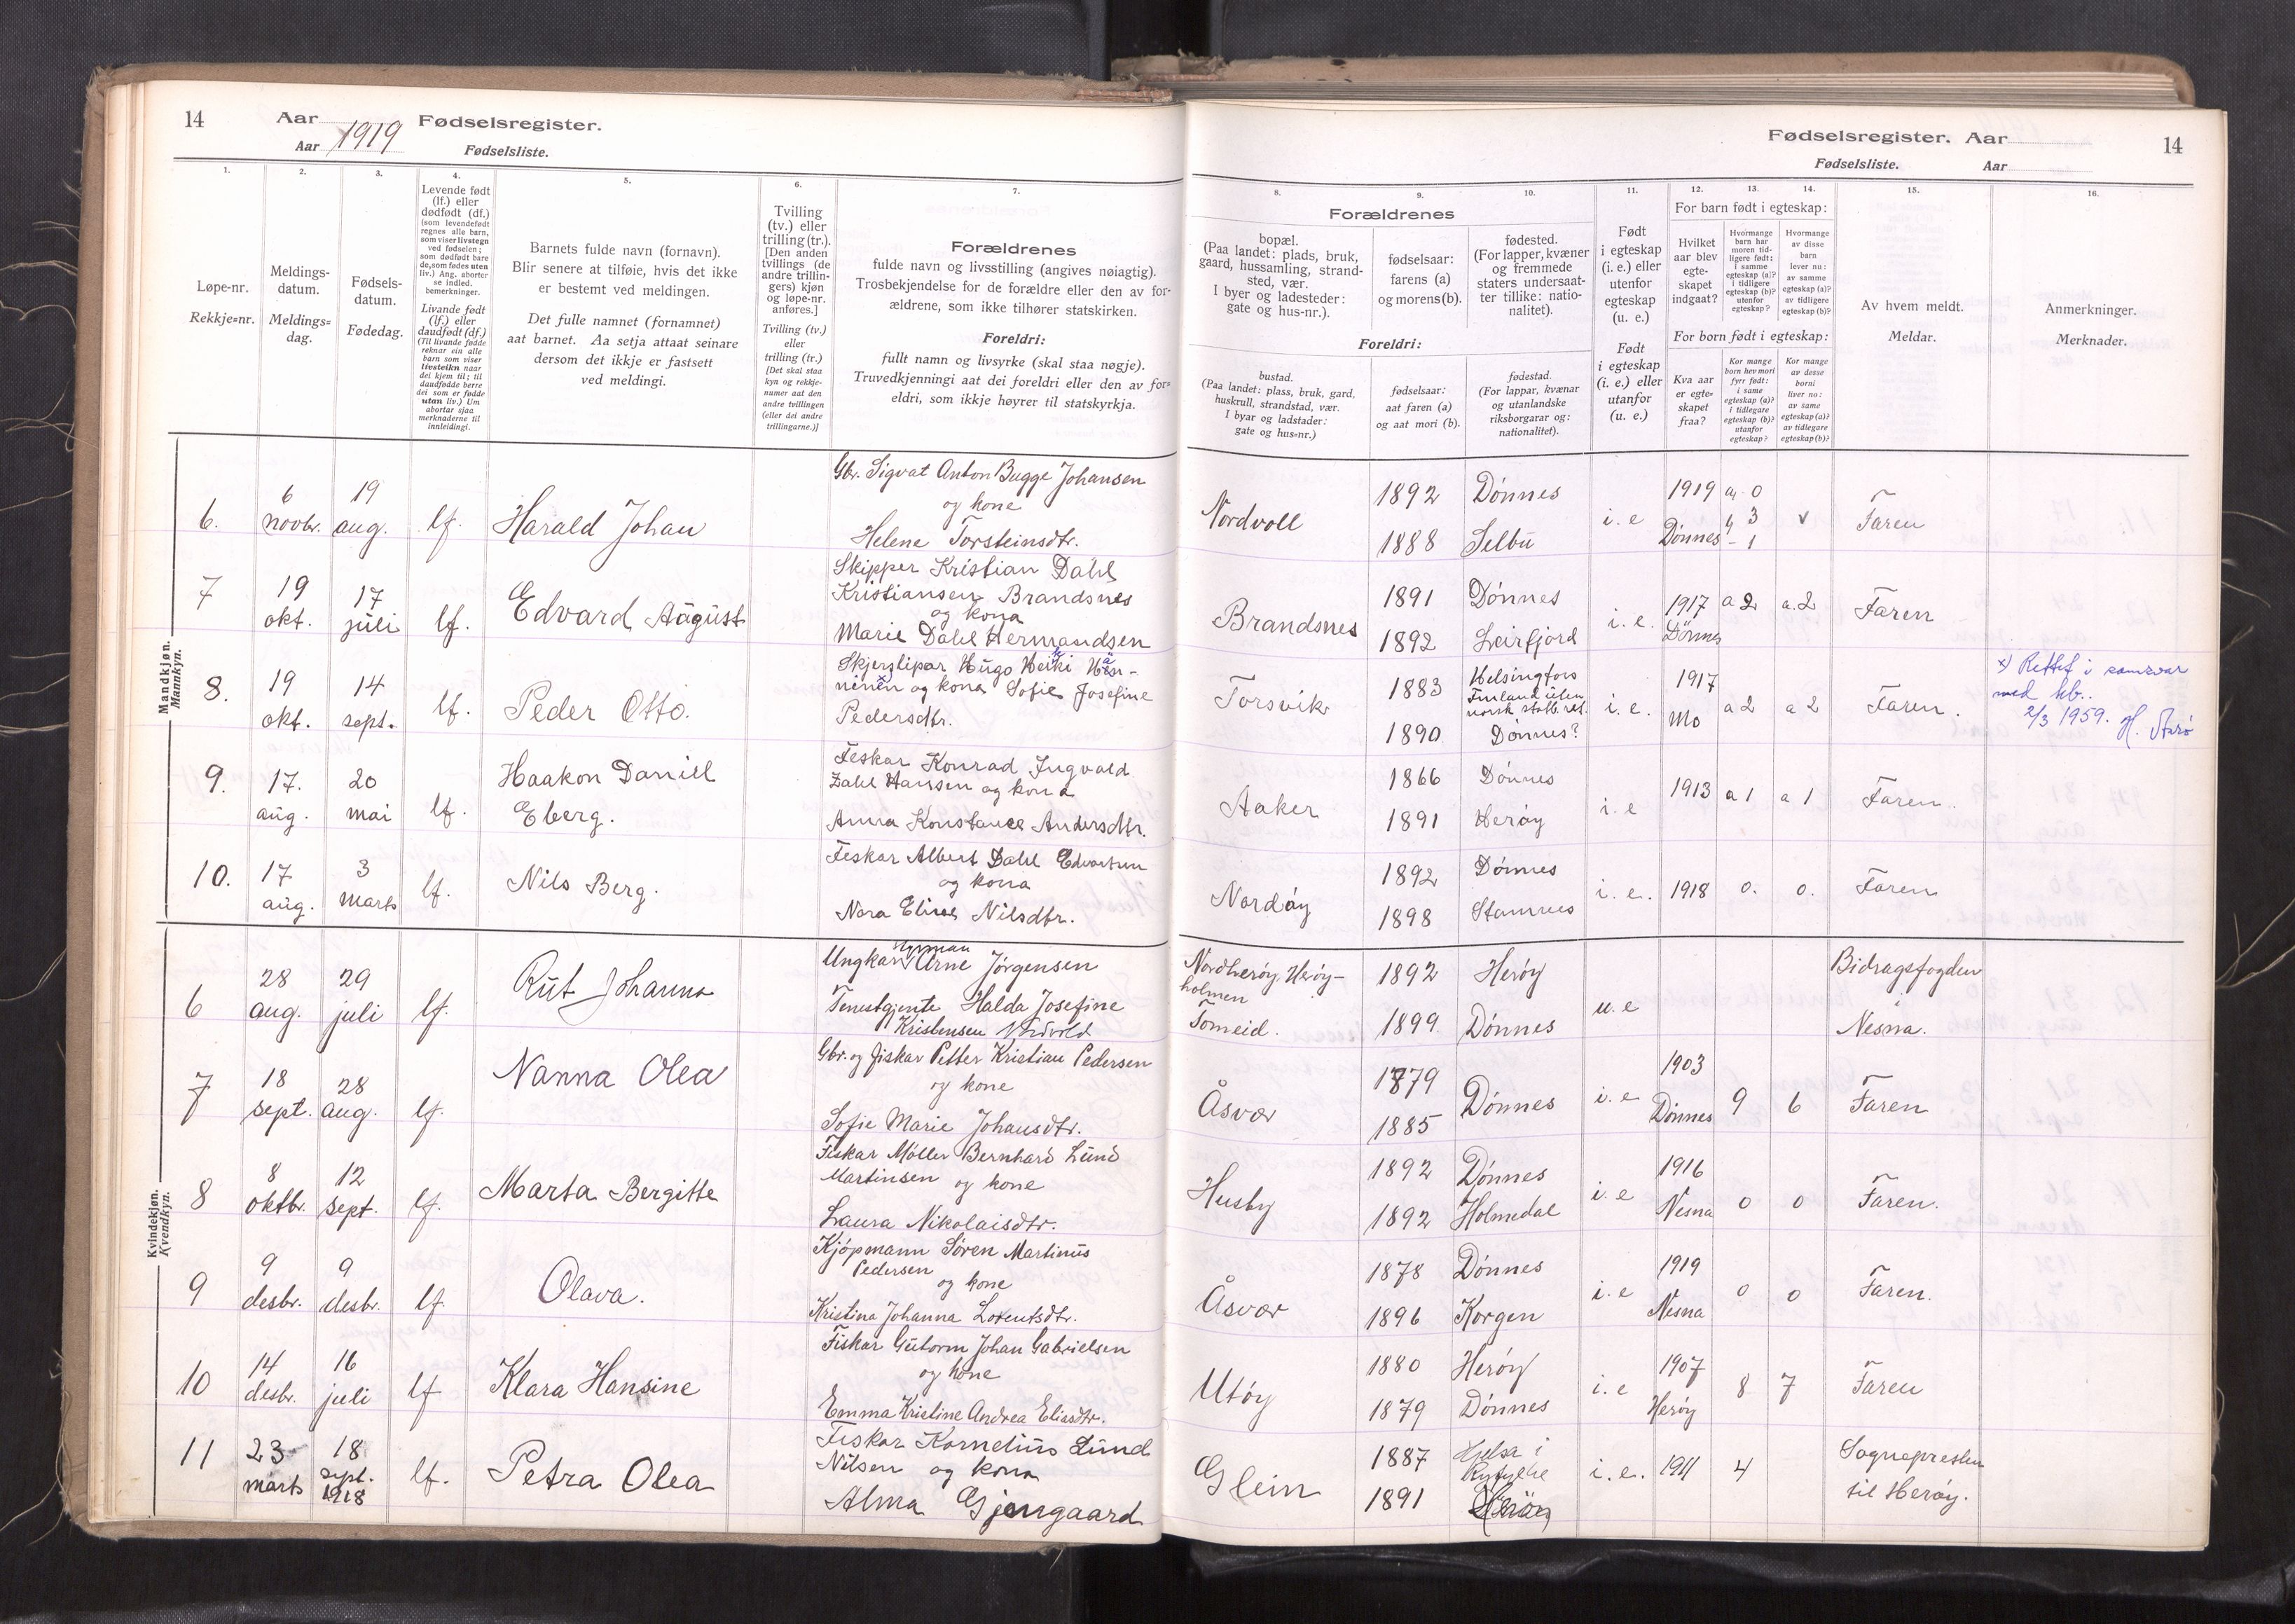 14
Aar 1919
Fødselsregister.
Aar
Fødselsliste.
1.
Løpe-nr.
Rekkje=nr.
2.
Meldings-
datum.
Meldings=
dag.
3.
Fødsels-
datum.
Fødedag.
4.
Levende født
(lf.) eller
dødfødt (df.)
(som levendefødt
regnes alle barn,
som viser livstegn
ved fødselen;
som dødfødt bare
de, som fødes uten
liv.) Ang. aborter
se indled.
bemerkninger.
Livande født
(lf.) eller
daudfødt (df.)
(Til livande fødde
reknar ein alle
barn som viser
livsteikn naar
dei kjem til; til
daudfødde berre
dei som er fødde
utan liv.) Um
abortar sjaa
merknaderne til
innleidingi.
5.
Barnets fulde navn (fornavn).
Blir senere at tilføie, hvis det ikke
er bestemt ved meldingen.
Det fulle namnet (fornamnet)
aat barnet. Aa setja attaat seinare
dersom det ikkje er fastsett
ved meldingi.
6.
Tvilling
(tv.) eller
trilling (tr.).
[Den anden
tvillings (de
andre trillin-
gers) kjøn
og løpe-nr.
anføres.]
Tvilling (tv.)
eller
trilling (tr.)
[Det skal staa
kyn og rekkje-
numer aat den
andre tvillingen
(eller dei andre
trillingarne.)]
7.
Forældrenes
fulde navn og livsstilling (angives nøiagtig).
Trosbekjendelse for de forældre eller den av for-
ældrene, som ikke tilhører statskirken.
Foreldri:
fullt namn og livsyrke (skal staa nøgje).
Truvedkjenningi aat dei foreldri eller den av for=
eldri, som ikkje høyrer til statskyrkja.
Mandkjøn.
Mannkyn.
6.
6
novbr.
19
aug.
lf.
Harald Johan
Gbr. Sigvat Anton Bugge Johansen
og kone
Helene Torsteinsdtr.
7
19
okt.
17
juli
lf.
Edvard August
Skipper Kristian Dahl
Kristiansen Brandsnes
og kona
Marie Dahl Hermandsen
8.
19
okt.
14
sept.
lf.
Peder Otto.
Skjerslipar Hugo Heiki Hän-
ninen og kona Sofie Josefine
Pedersdtr.
9.
17.
aug.
20
mai
lf.
Haakon Daniel
Eberg.
Feskar Konrad Ingvald
Zahl Hansen og kona
Anna Konstance Andersdtr.
10.
17
aug.
3
marts
lf.
Nils Berg.
Feskar Albert Dahl Edvartsen
og kona
Nora Elise Nilsdtr.
Kvindekjøn.
Kvendkyn.
6
28
aug.
29
juli
lf.
Rut Johanna
Ungkar styrman Arne Jörgensen
Tenestgjente Halda Josefine
Kristensen
7
18
sept.
28
aug.
lf.
Nanna Olea
Gbr. og fiskar Petter Kristian Pedersen
og kone
Sofie Marie Johansdtr.
8
8
oktbr.
12
sept.
lf.
Marta Bergitte
Fiskar Möller Bernhard Lund
Martinsen og kone
Laura Nikolaisdtr.
9
9
desbr.
9
desbr.
lf.
Olava.
Kjópmann Sören Martinus
Pedersen
og kone
Kristina Johanna Lorentsdtr.
10
14
desbr.
16
juli
lf
Klara Hansine
Fiskar Gutorm Johan Gabrielsen
og kone
Emma Kristine Andrea Eliasdtr.
11
23
marts
18
sept.
1918
lf.
Petra Olea
Feskar Kornelius Lund
Nilsen og kona
Alma Gjengaard
Fødselsregister. Aar
14
Fødselsliste. Aar
8.
Forældrenes
bopæl.
(Paa landet: plads, bruk,
gaard, hussamling, strand-
sted, vær.
I byer og ladesteder:
gate og hus-nr.).
Foreldri:
bustad.
(Paa landet: plass, bruk, gard,
huskrull, strandstad, vær.
I byar og ladstader:
gate og hus=nr.)
9.
fødselsaar:
farens (a)
og morens (b).
fødselsaar:
aat faren (a)
og aat mori (b).
10.
fødested.
(For lapper, kvæner
og fremmede
staters undersaat-
ter tillike: natio-
nalitet).
fødestad.
(For lappar, kvænar
og utanlandske
riksborgarar og:
nationalitet).
11.
Født
i egteskap
(i. e.) eller
utenfor
egteskap
(u. e.)
Født
i egteskap
(i. e.) eller
utanfor
(u. e.)
12.
13.
14.
For barn født i egteskap:
Hvilket
aar blev
egte-
skapet
indgaat?
Hvormange
barn har
moren tid-
ligere født:
i samme
egteskap (a)?
i tidligere
egteskap (b)?
utenfor
egteskap?
Hvormange
av disse
barn
lever nu:
av samme
egteskap (a)?
av tidligere
egteskap (b)?
For born født i egteskap:
Kva aar
er egte-
skapet
fraa?
Kor mange
born hev mori
fyrr født:
i same
egteskap (a)?
i tidlegare
egteskap (b)?
utanfor
egteskap?
Kor mange
av desse
borni
liver no:
av same
egteskap (a)?
av tidlegare
egteskap (b)?
15.
Av hvem meldt.
Meldar.
16.
Anmerkninger.
Merknader.
Nordvoll
1892
1888
Dónnes
Selbu
i. e
1919
Dónnes
a, 0
b, 3
- 1
v
Faren
Brandsnes
1891
1892
Dónnes
Leirfjord
i. e.
1917
Dönnes
a 2
a. 2
Faren
Torsvik
1883
1890
Helsingfors
Finland uten
norsk statb. ret.
Dónnes?
i. e.
1917
Mo
a 2
a 2
Faren.
x) Rettet i samsvar
med kb.
2/3 1959. H.
Aaker
1866
1891
Dónnes
Heróy
i. e
1913
a 1
a 1
Faren.
Nordóy
1892
1898
Dónnes
Stamnes
i. e.
1918
0.
0.
Faren
Nordheróy, Heróy-
holmen
Tomeid.
1892
1899
Heróy
Dónnes
u. e
Bidragsfogden
i
Nesna.
Åsvær
1879
1885
Dónnes
i. e
1903
Dónnes
9
6
Faren
Husby
1892
1892
Dónnes
Holmedal
i. e
1916
Nesna
0
0
Faren.
Åsvær
1878
1896
Dónnes
Korgen
i. e
1919
Nesna
0
0
Faren.
Utóy
1880
1879
Heróy
Dónnes
i. e
1907
Heróy
8
7
Faren
Glein
1887
1891
Hjelsa i
Ryfylke
i. e.
1911
4
Sognepresten
til Heröy.